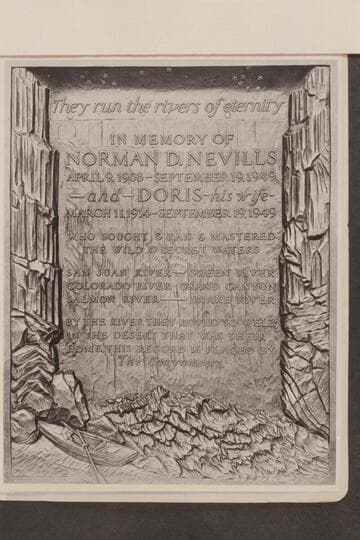 They run the rivers of eternity
IN MEMORY OF
NORMAN D. NEVILLS
APRIL 9, 1908 - SEPTEMBER 19, 1949
- and - DORIS - his wife -
MARCH 11, 1914 - SEPTEMBER 19, 1949
WHO SOUGHT & RAN & MASTERED
THE WILD & SECRET WATERS
SAN JUAN RIVER — GREEN RIVER
COLORADO RIVER - GRAND CANYON
SALMON RIVER — SNAKE RIVER
BY THE RIVER THEY LOVED SO WELL
IN THE DESERT THAT WAS THEIR
HOME, THIS RECORD IS PLACED BY
The Canyoneers.